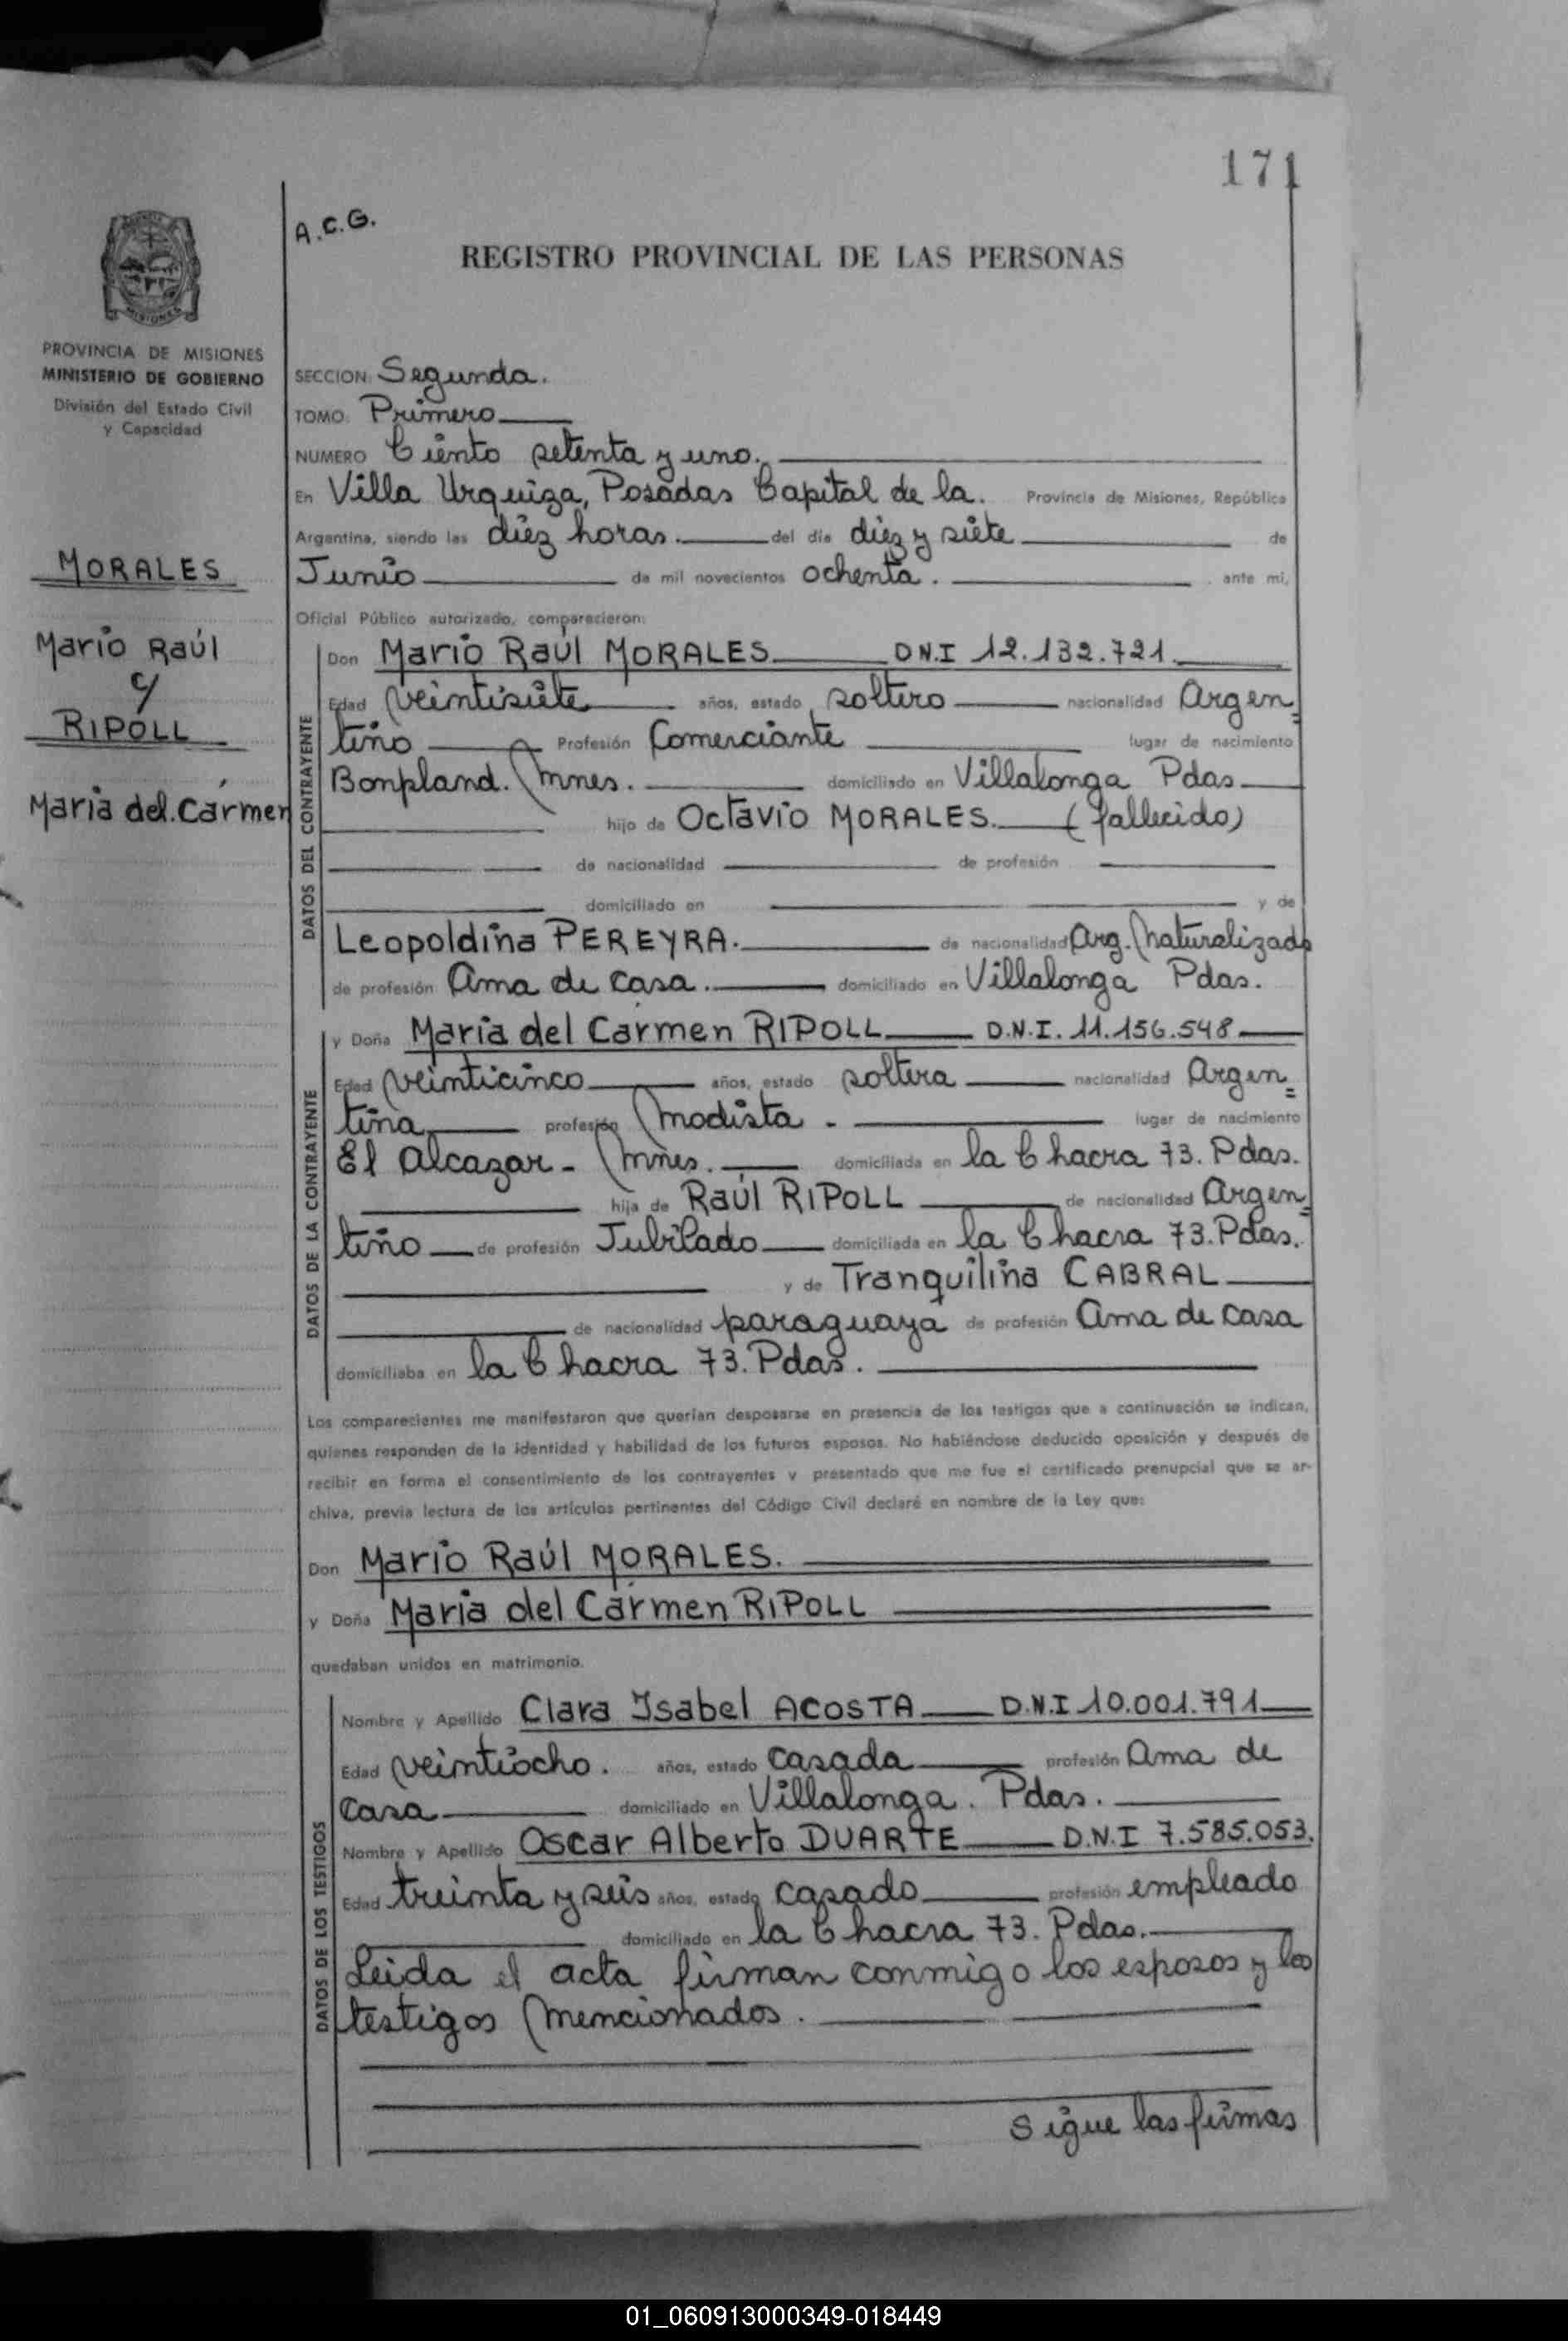 171
A.C.G.
REGISTRO PROVINCIAL DE LAS PERSONAS
MISIONES
PROVINCIA DE MISIONES
MINISTERIO DE GOBIERNO
División del Estado Civil
y Capacidad
MORALES
Mario Raúl
c/
RIPOLL
Maria del Cármen
SECCION: Segunda.
TOMO: Primero
NUMERO Ciento setenta y uno.
En Villa Urquiza, Posadas Capital de la. Provincia de Misiones, República
Argentina, siendo las diez horas. del día diez y siete de
Junio de mil novecientos ochenta. ante mi,
Oficial Público autorizado, comparecieron:
DATOS DEL CONTRAYENTE
Don Mario Raúl MORALES D.N.I 12.132.721.
Edad veintisiete años, estado soltero nacionalidad Argen=
tino Profesión Comerciante lugar de nacimiento
Bonpland. Mnes. domiciliado en Villalonga Pdas
hijo de Octavio MORALES. (fallecido)
de nacionalidad de profesión
domiciliado en y de
Leopoldina PEREYRA. de nacionalidad Arg. Naturalizada
de profesión Ama de casa. domiciliado en Villalonga Pdas.
DATOS DE LA CONTRAYENTE
y Doña Maria del Carmen RIPOLL D.N.I. 11.156.548
Edad veinticinco años, estado soltera nacionalidad Argen=
tina profesión Modista. lugar de nacimiento
El Alcazar - Mnes. domiciliada en la Chacra 73. Pdas.
hija de Raúl RIPOLL de nacionalidad Argen=
tino de profesión Jubilado domiciliada en la Chacra 73. Pdas.
y de Tranquilina CABRAL
de nacionalidad paraguaya de profesión Ama de casa
domiciliaba en la Chacra 73. Pdas.
Los comparecientes me manifestaron que querían desposarse en presencia de los testigos que a continuación se indican,
quienes responden de la identidad y habilidad de los futuros esposos. No habiéndose deducido oposición y después de
recibir en forma el consentimiento de los contrayentes y presentado que me fue el certificado prenupcial que se ar-
chiva, previa lectura de los artículos pertinentes del Código Civil declaré en nombre de la Ley que:
Don Mario Raúl MORALES.
y Doña Maria del Cármen RIPOLL
quedaban unidos en matrimonio.
DATOS DE LOS TESTIGOS
Nombre y Apellido Clara Isabel ACOSTA D.N.I 10.001.791
Edad veintiocho. años, estado casada profesión Ama de
casa domiciliado en Villalonga. Pdas.
Nombre y Apellido Oscar Alberto DUARTE D.N.I 7.585.053.
Edad treinta y seis años, estado casado profesión empleado
domiciliado en la Chacra 73. Pdas.
Leida el acta firman conmigo los esposos y los
testigos mencionados.
Sigue las firmas
01_060913000349-018449